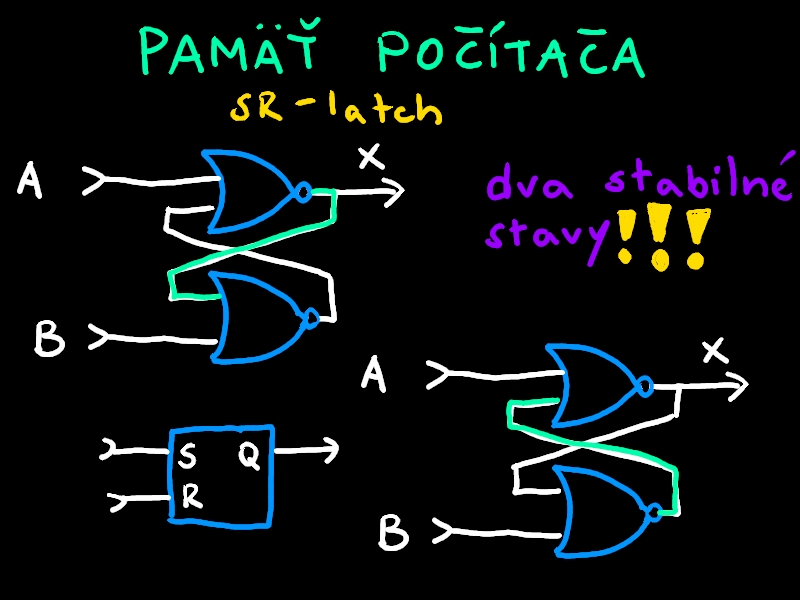 PAMÄŤ POČÍTAČA
SR-latch
A
X
dva stabilné
stavy!!!
B
A
X
S Q
R
B